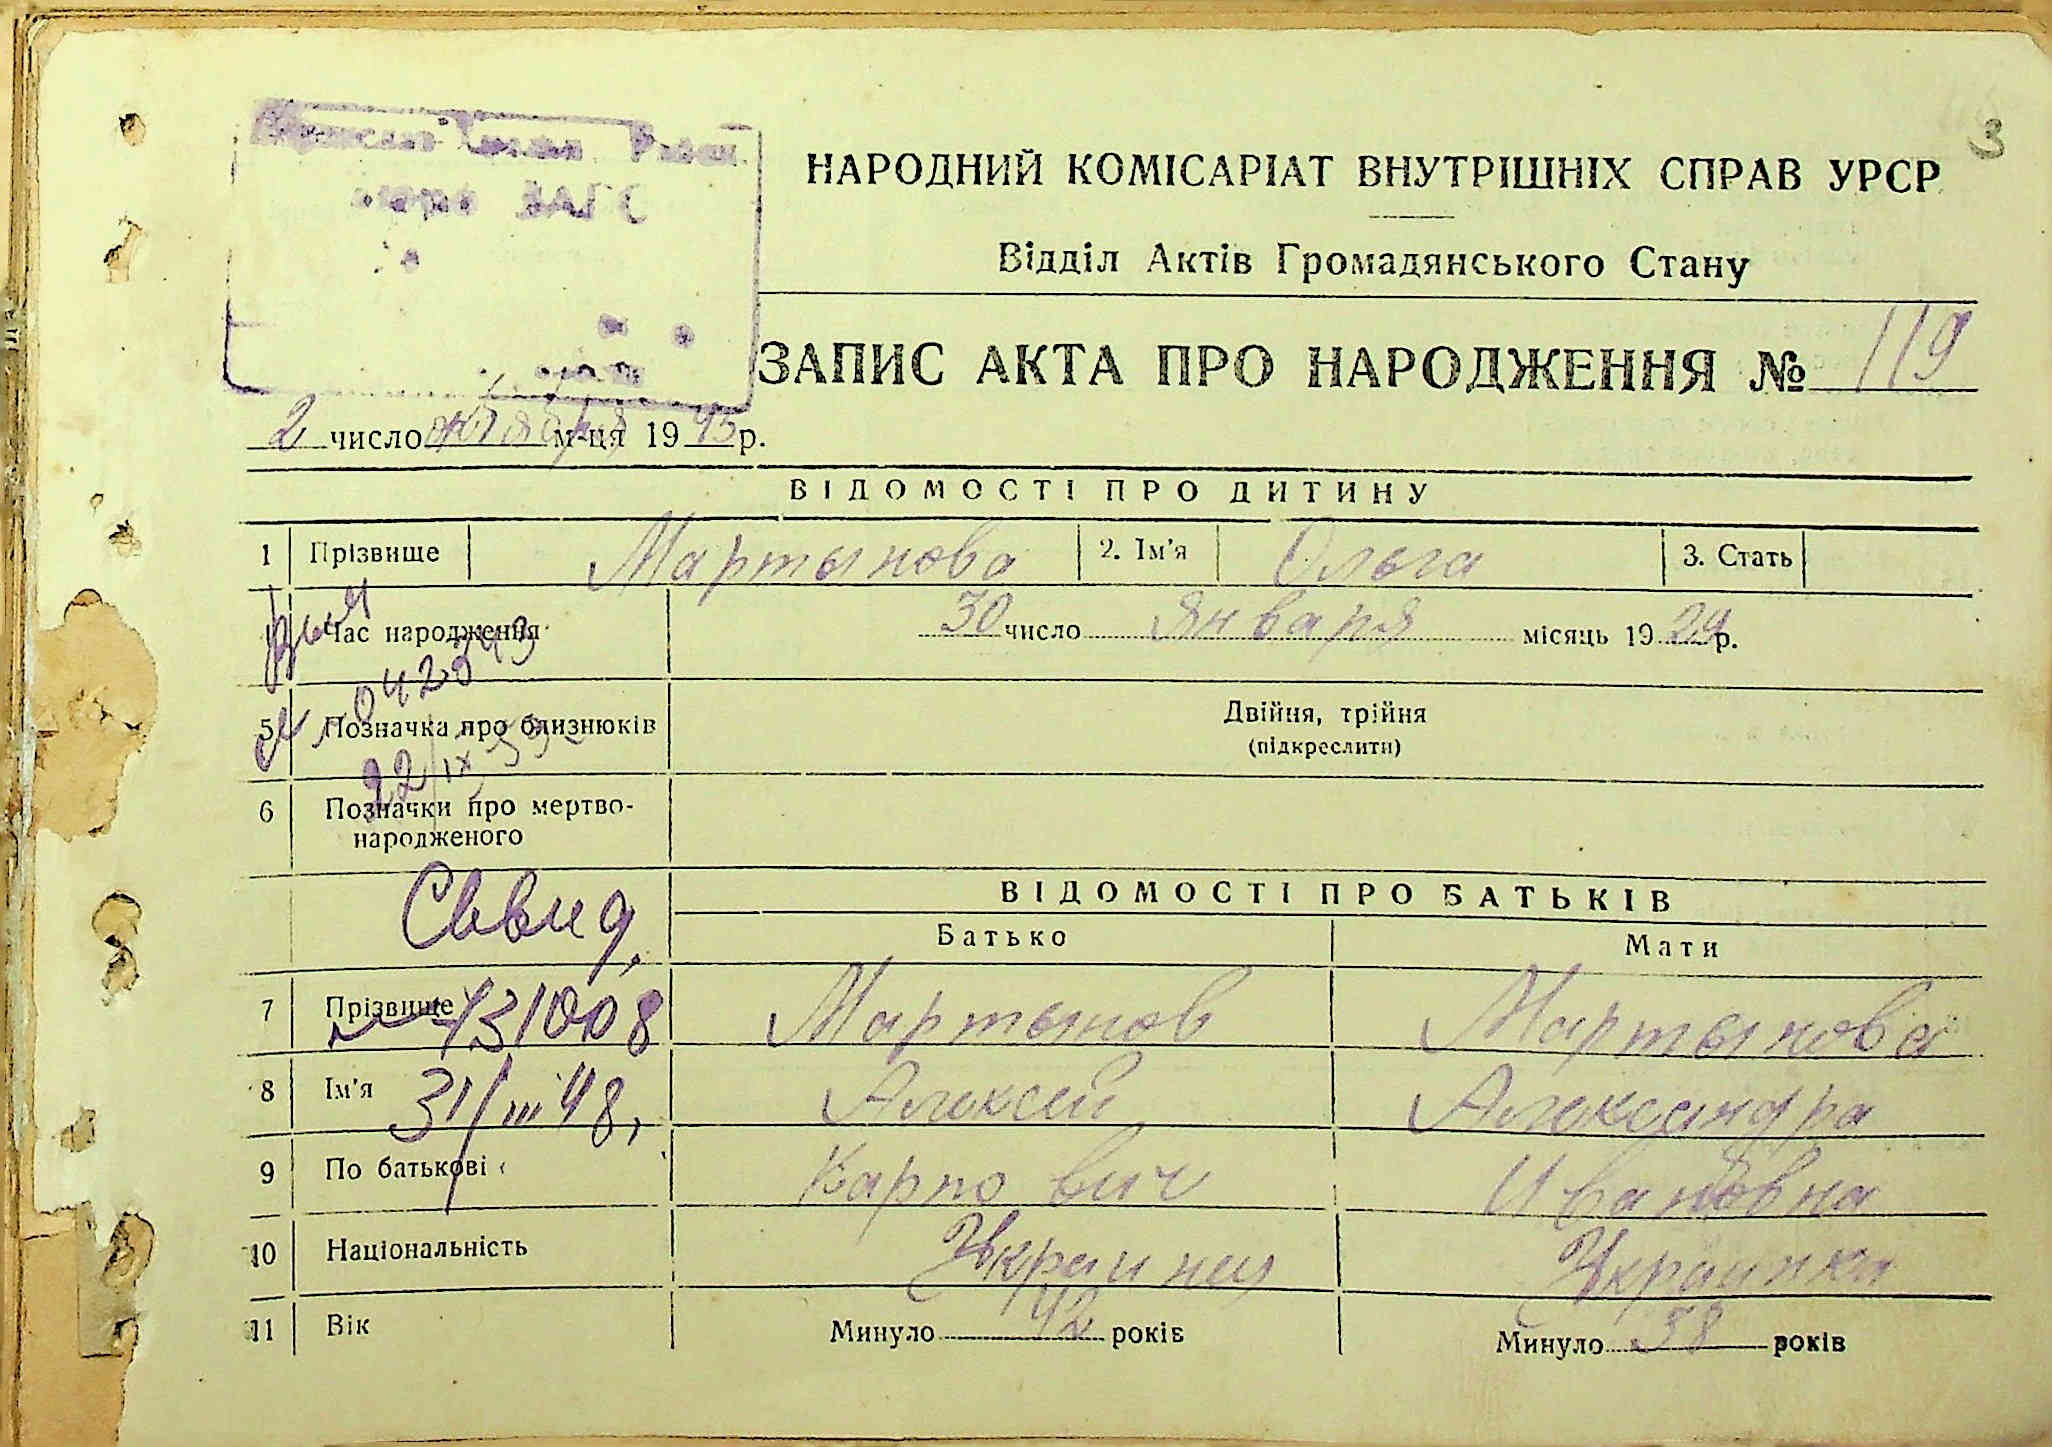 3
НАРОДНИЙ КОМІСАРІАТ ВНУТРІШНІХ СПРАВ УРСР
ЗАГС
Відділ Актів Громадянського Стану
ЗАПИС АКТА ПРО НАРОДЖЕННЯ № 119
2 число октября м-ця 1945 р.
ВІДОМОСТІ ПРО ДИТИНУ
1 Прізвище Мартынова 2. Ім'я Ольга 3. Стать
Час народження 30 число января місяць 1929 р.
042343
5 Позначка про близнюків Двійня, трійня
(підкреслити)
22/IX
6 Позначки про мертво-
народженого
Свид.
ВІДОМОСТІ ПРО БАТЬКІВ
Батько Мати
7 Прізвище Мартынов Мартынова
431008
8 Ім'я Алексей Александра
31/III 48,
9 По батькові Карпович Ивановна
10 Національність Украинец Украинка
11 Вік Минуло 42 років Минуло 38 років